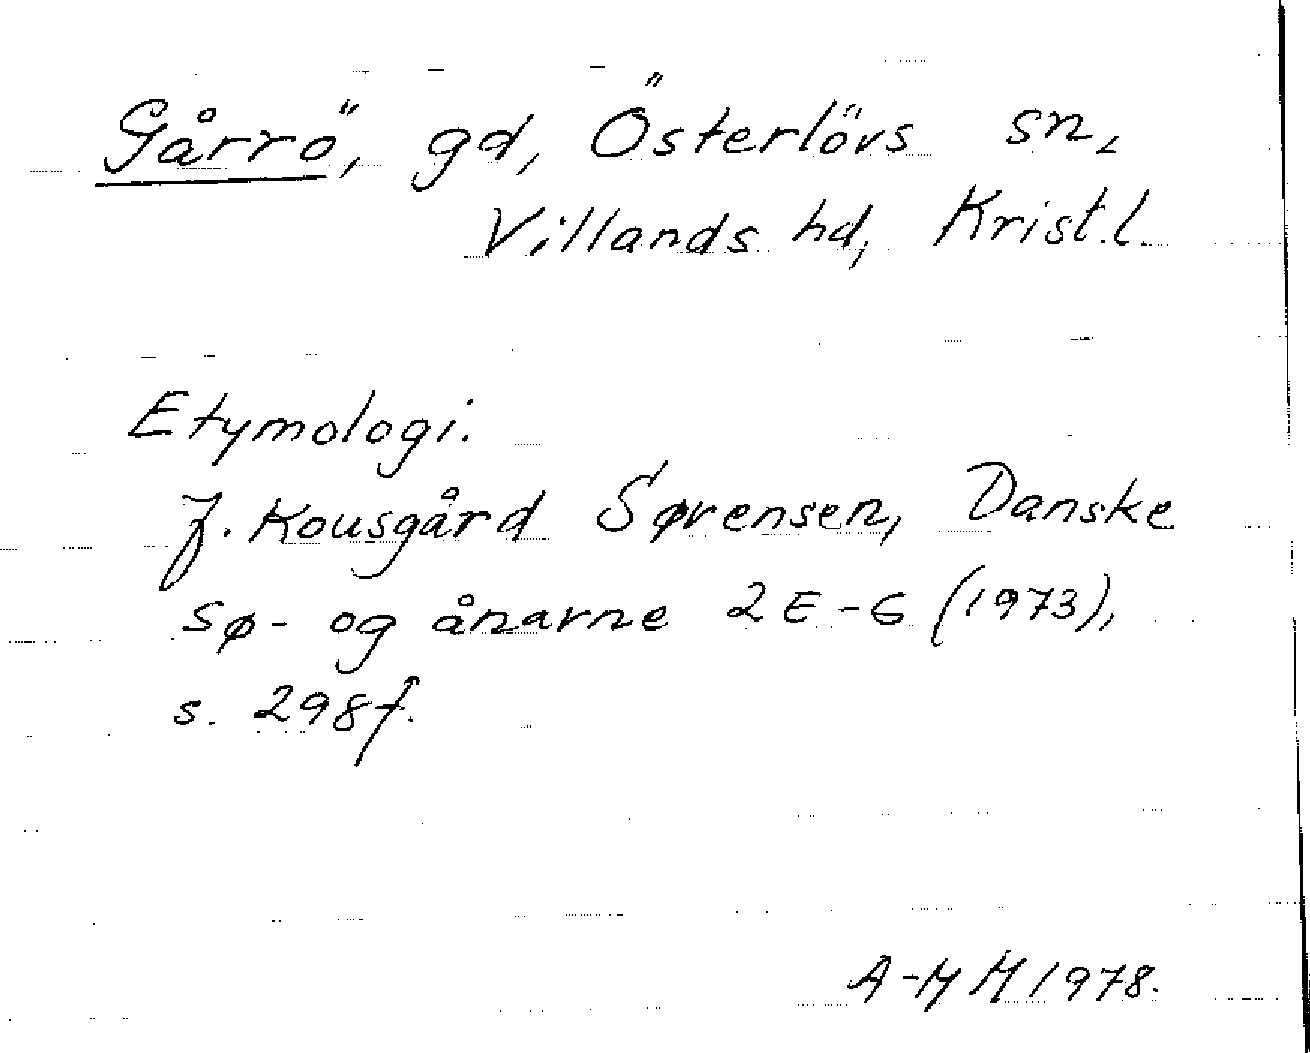 Gårrö, gd, Österlövs sn,
Villands hd, Krist.l.
Etymologi.
J. Kousgård Sørensen, Danske
sø- og ånavne 2 E-G (1973),
s. 298f.
A-MH 1978.